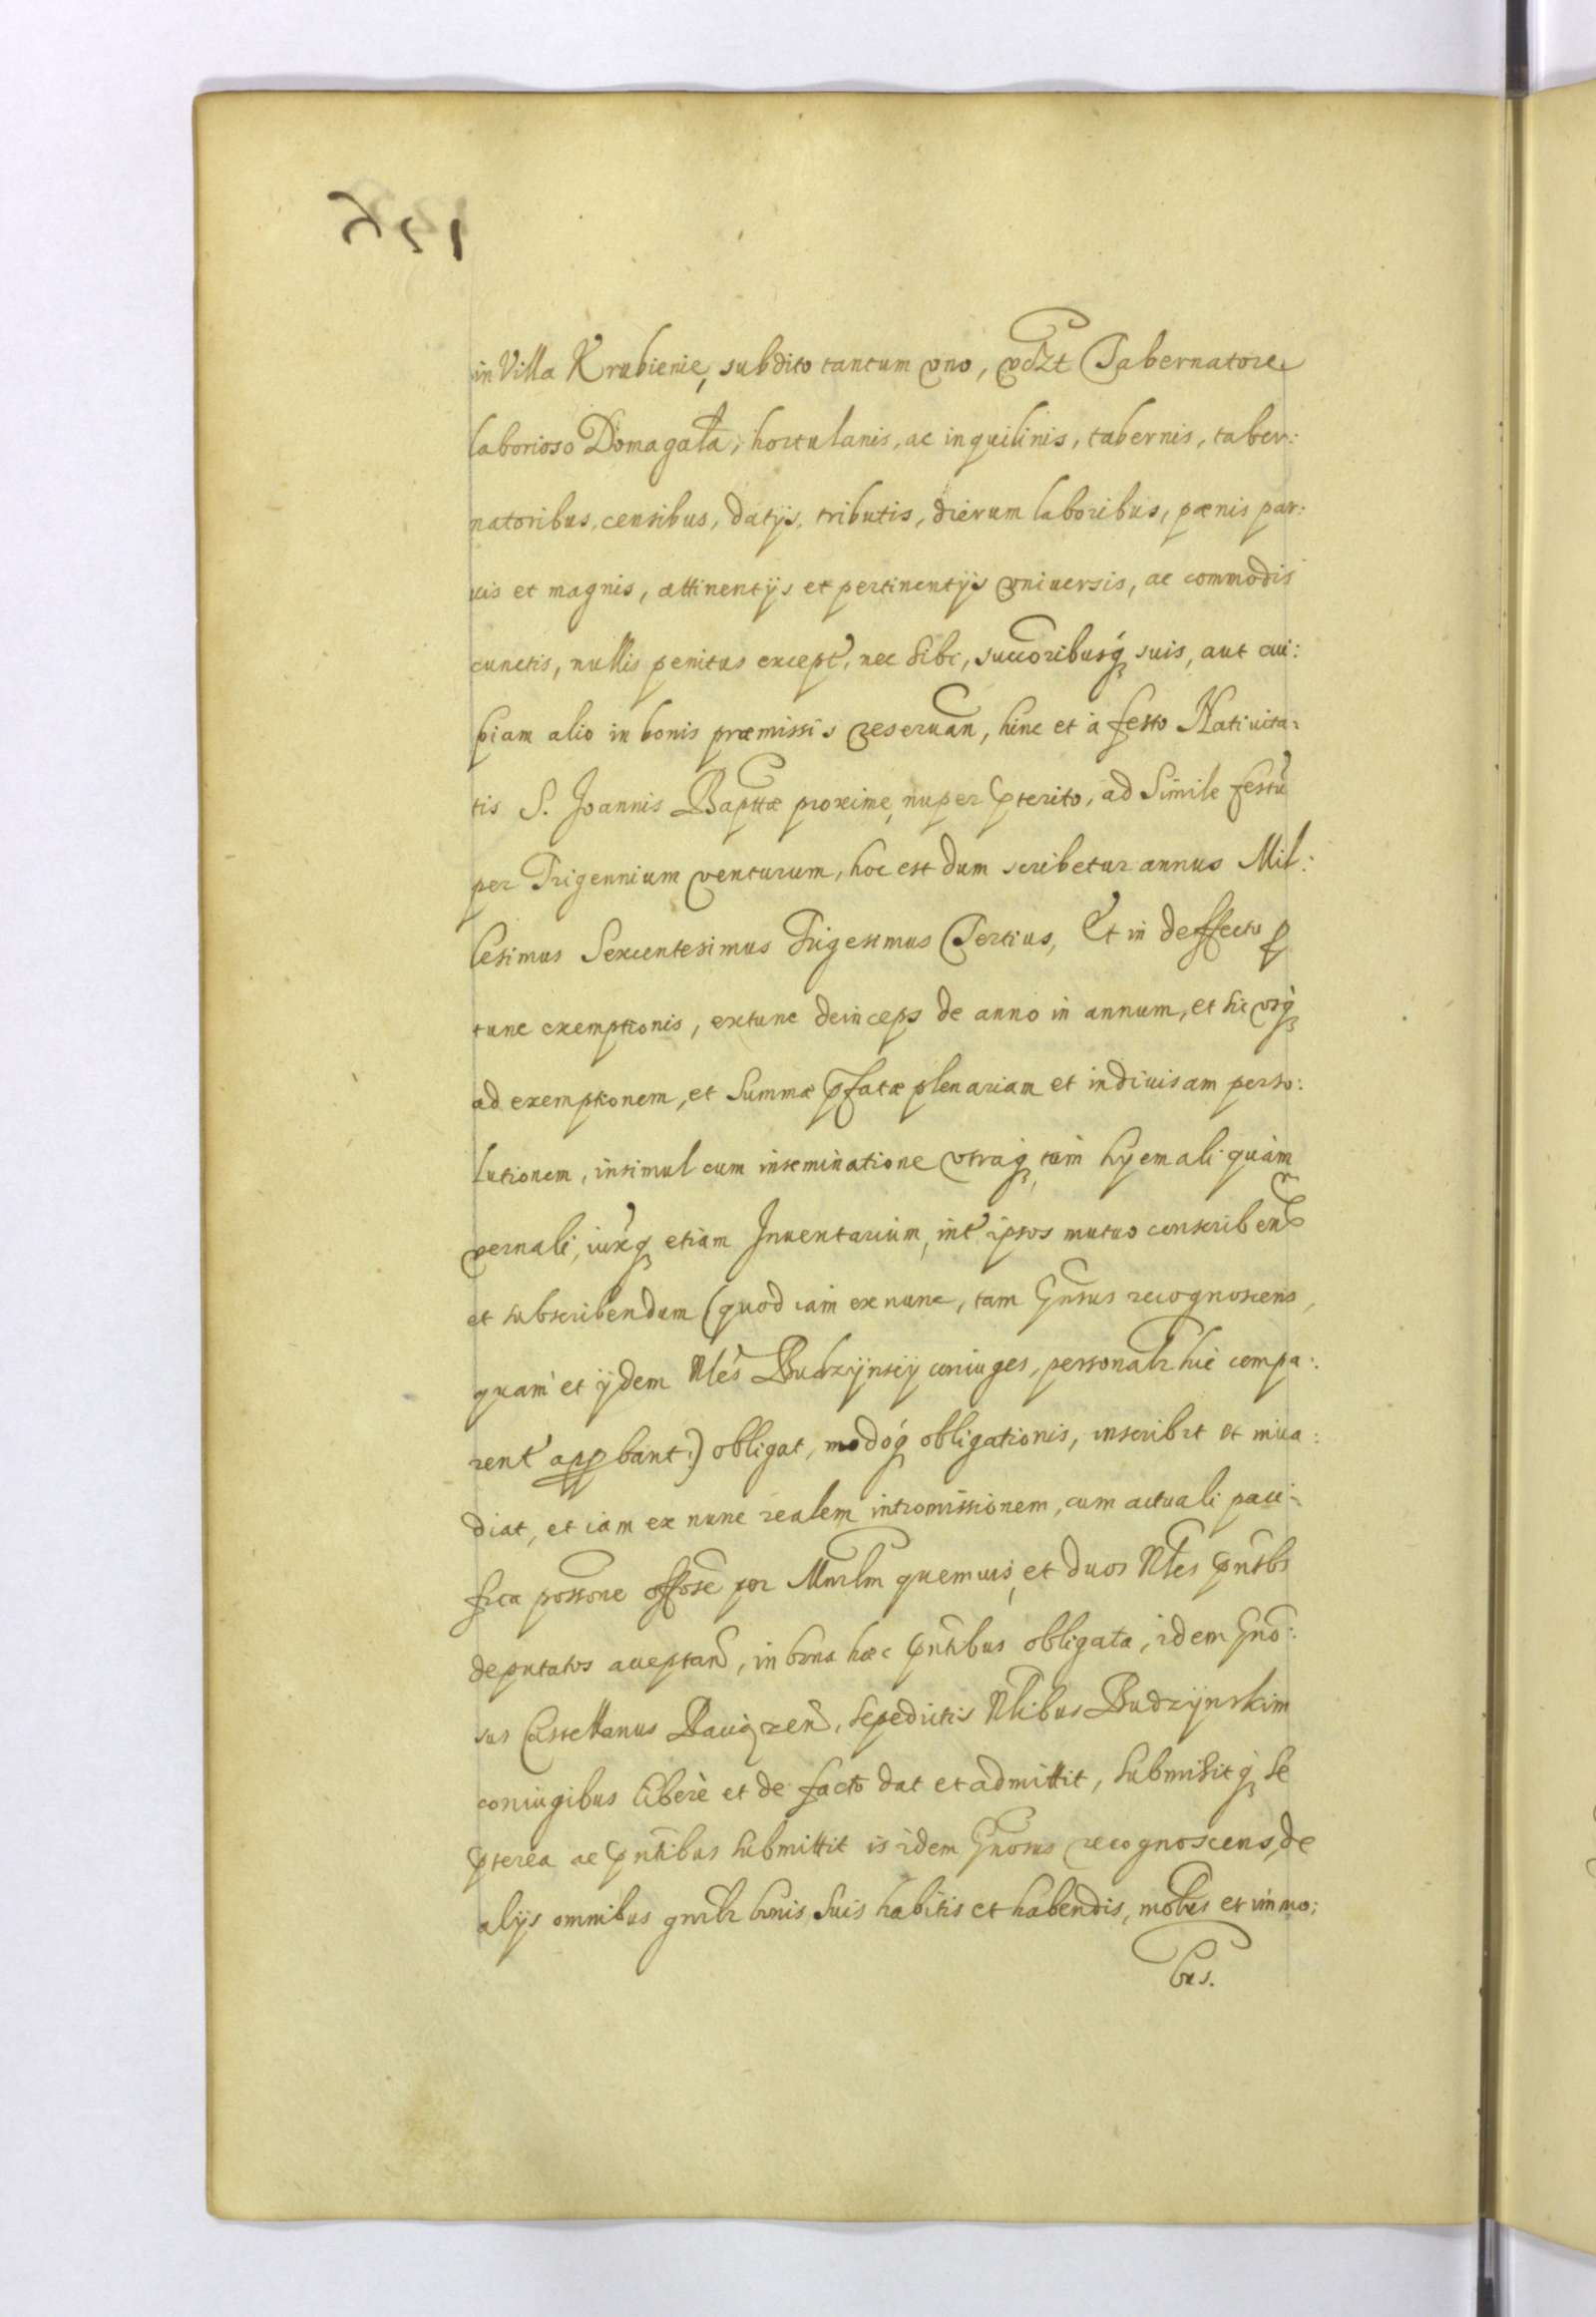 in Villa Krubienie, subdito tantum vno, vdzt Tabernatore
laborioso Domagała, hortulanis, ac inquilinis, tabernis, taber:
natoribus, censibus, datijs, tributis, dierum laboribus, pænis par:
uis et magnis, attinentijs et pertinentijs vniuersis, ac commodis
cunctis, nullis penitus except, nec sibi, succoribusq suis, aut cui:
piam alio in bonis præmissis reseruan, hinc et à festo Natiuita:
tis S. Joannis Bapttæ proxime, nuper pterito, ad Simile festu
per Trigennium venturum, hoc est dum scribetur annus Mil:
lesimus Sexcentesimus Trigesimus Tertius, Et in deffectu p
tunc exemptionis, extunc deinceps de anno in annum, et sic vsq
ad exemptionem, et Summæ pfatæ plenariam et indiuisam perso:
lutionem, insimul cum inseminatione vtraq tam hyemali quàm
vernali, iuxtq etiam Inuentarium, int ipsos mutuo conscribend
et subscribendum (quod iam ex nunc, tam Gnsus recognoscens,
quam et ijdem Nles Budzijnscij coniuges, personalr hic compa:
rent appbant:) obligat, modoq obligationis, inscribit et inua:
diat, et iam ex nunc realem intromissionem, cum actuali paci:
fica possone offose per Mnrlm quemuis, et duos Nles pntbs
deputatos acceptand, in bona hæc pntibus obligata, idem Gno:
sus Castellanus Raciązen, sepedictis Nlibus Budzijnskim
coniugibus liberè et de facto dat et admittit, submisitq se
pterea ac pntibus submittit is idem Gnosus recognoscens, de
alijs omnibus gnrlr bonis suis habitis et habendis, mobus et immo:
bus.